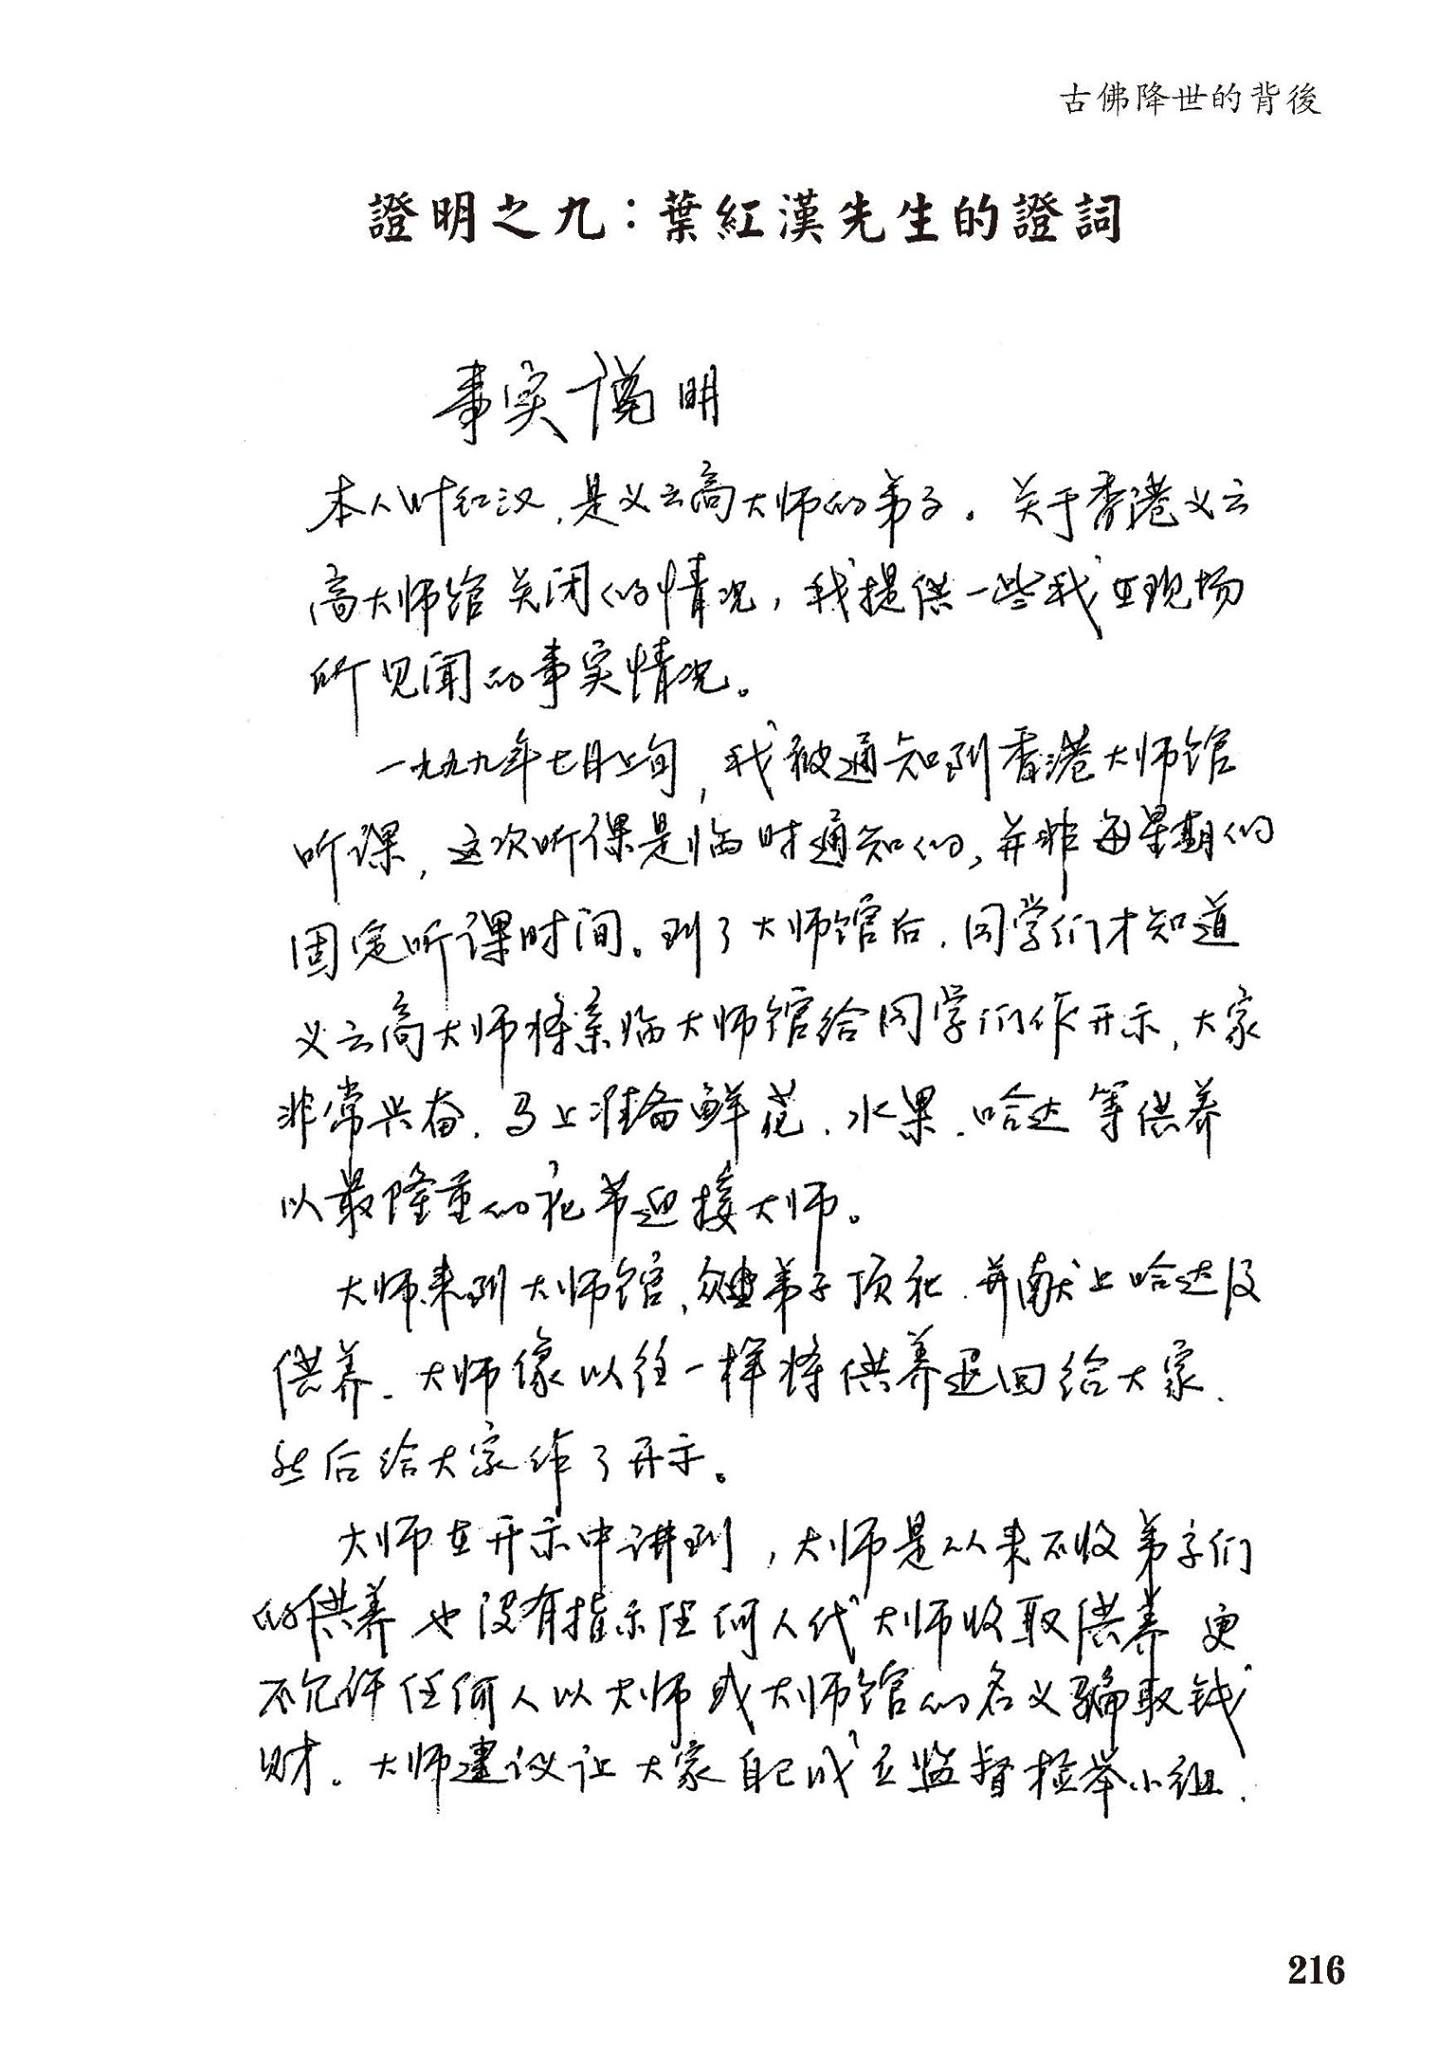 古佛降世的背後
證明之九：葉紅漢先生的證詞
事实说明
本人叶红汉，是义云高大师的弟子。关于香港义云
高大师馆关闭的情况，我提供一些我在现场
所见闻的事实情况。
一九九九年七月上旬，我被通知到香港大师馆
听课，这次听课是临时通知的，并非每星期的
固定听课时间。到了大师馆后，同学们才知道
义云高大师将亲临大师馆给同学们作开示，大家
非常兴奋，马上准备鲜花、水果、哈达等供养
以最隆重的礼节迎接大师。
大师来到大师馆，众弟子顶礼，并献上哈达及
供养，大师像以往一样将供养退回给大家，
然后给大家作了开示。
大师在开示中讲到，大师是从来不收弟子们
的供养也没有指示任何人代大师收取供养 更
不允许任何人以大师或大师馆的名义骗取钱
财。大师建议让大家自己成立监督检举小组，
216